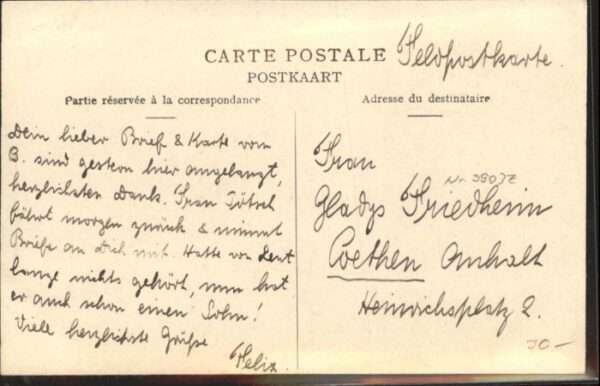 CARTE POSTALE
POSTKAART
Feldpostkarte.
Partie réservée à la correspondance
Adresse du destinataire
Dein lieber Brief & Karte vom
B. sind gestern hier angelangt,
herzlichsten Dank. Frau
fährt morgen zurück & nimmt
Briefe an Dich mit. Hatte von
lange nichts gehört, nun hat
er auch schon einen Sohn!
Viele herzlichste Grüße
Felix.
Frau
Gladys Friedheim
Coethen Anhalt
Heinrichsplatz 2.